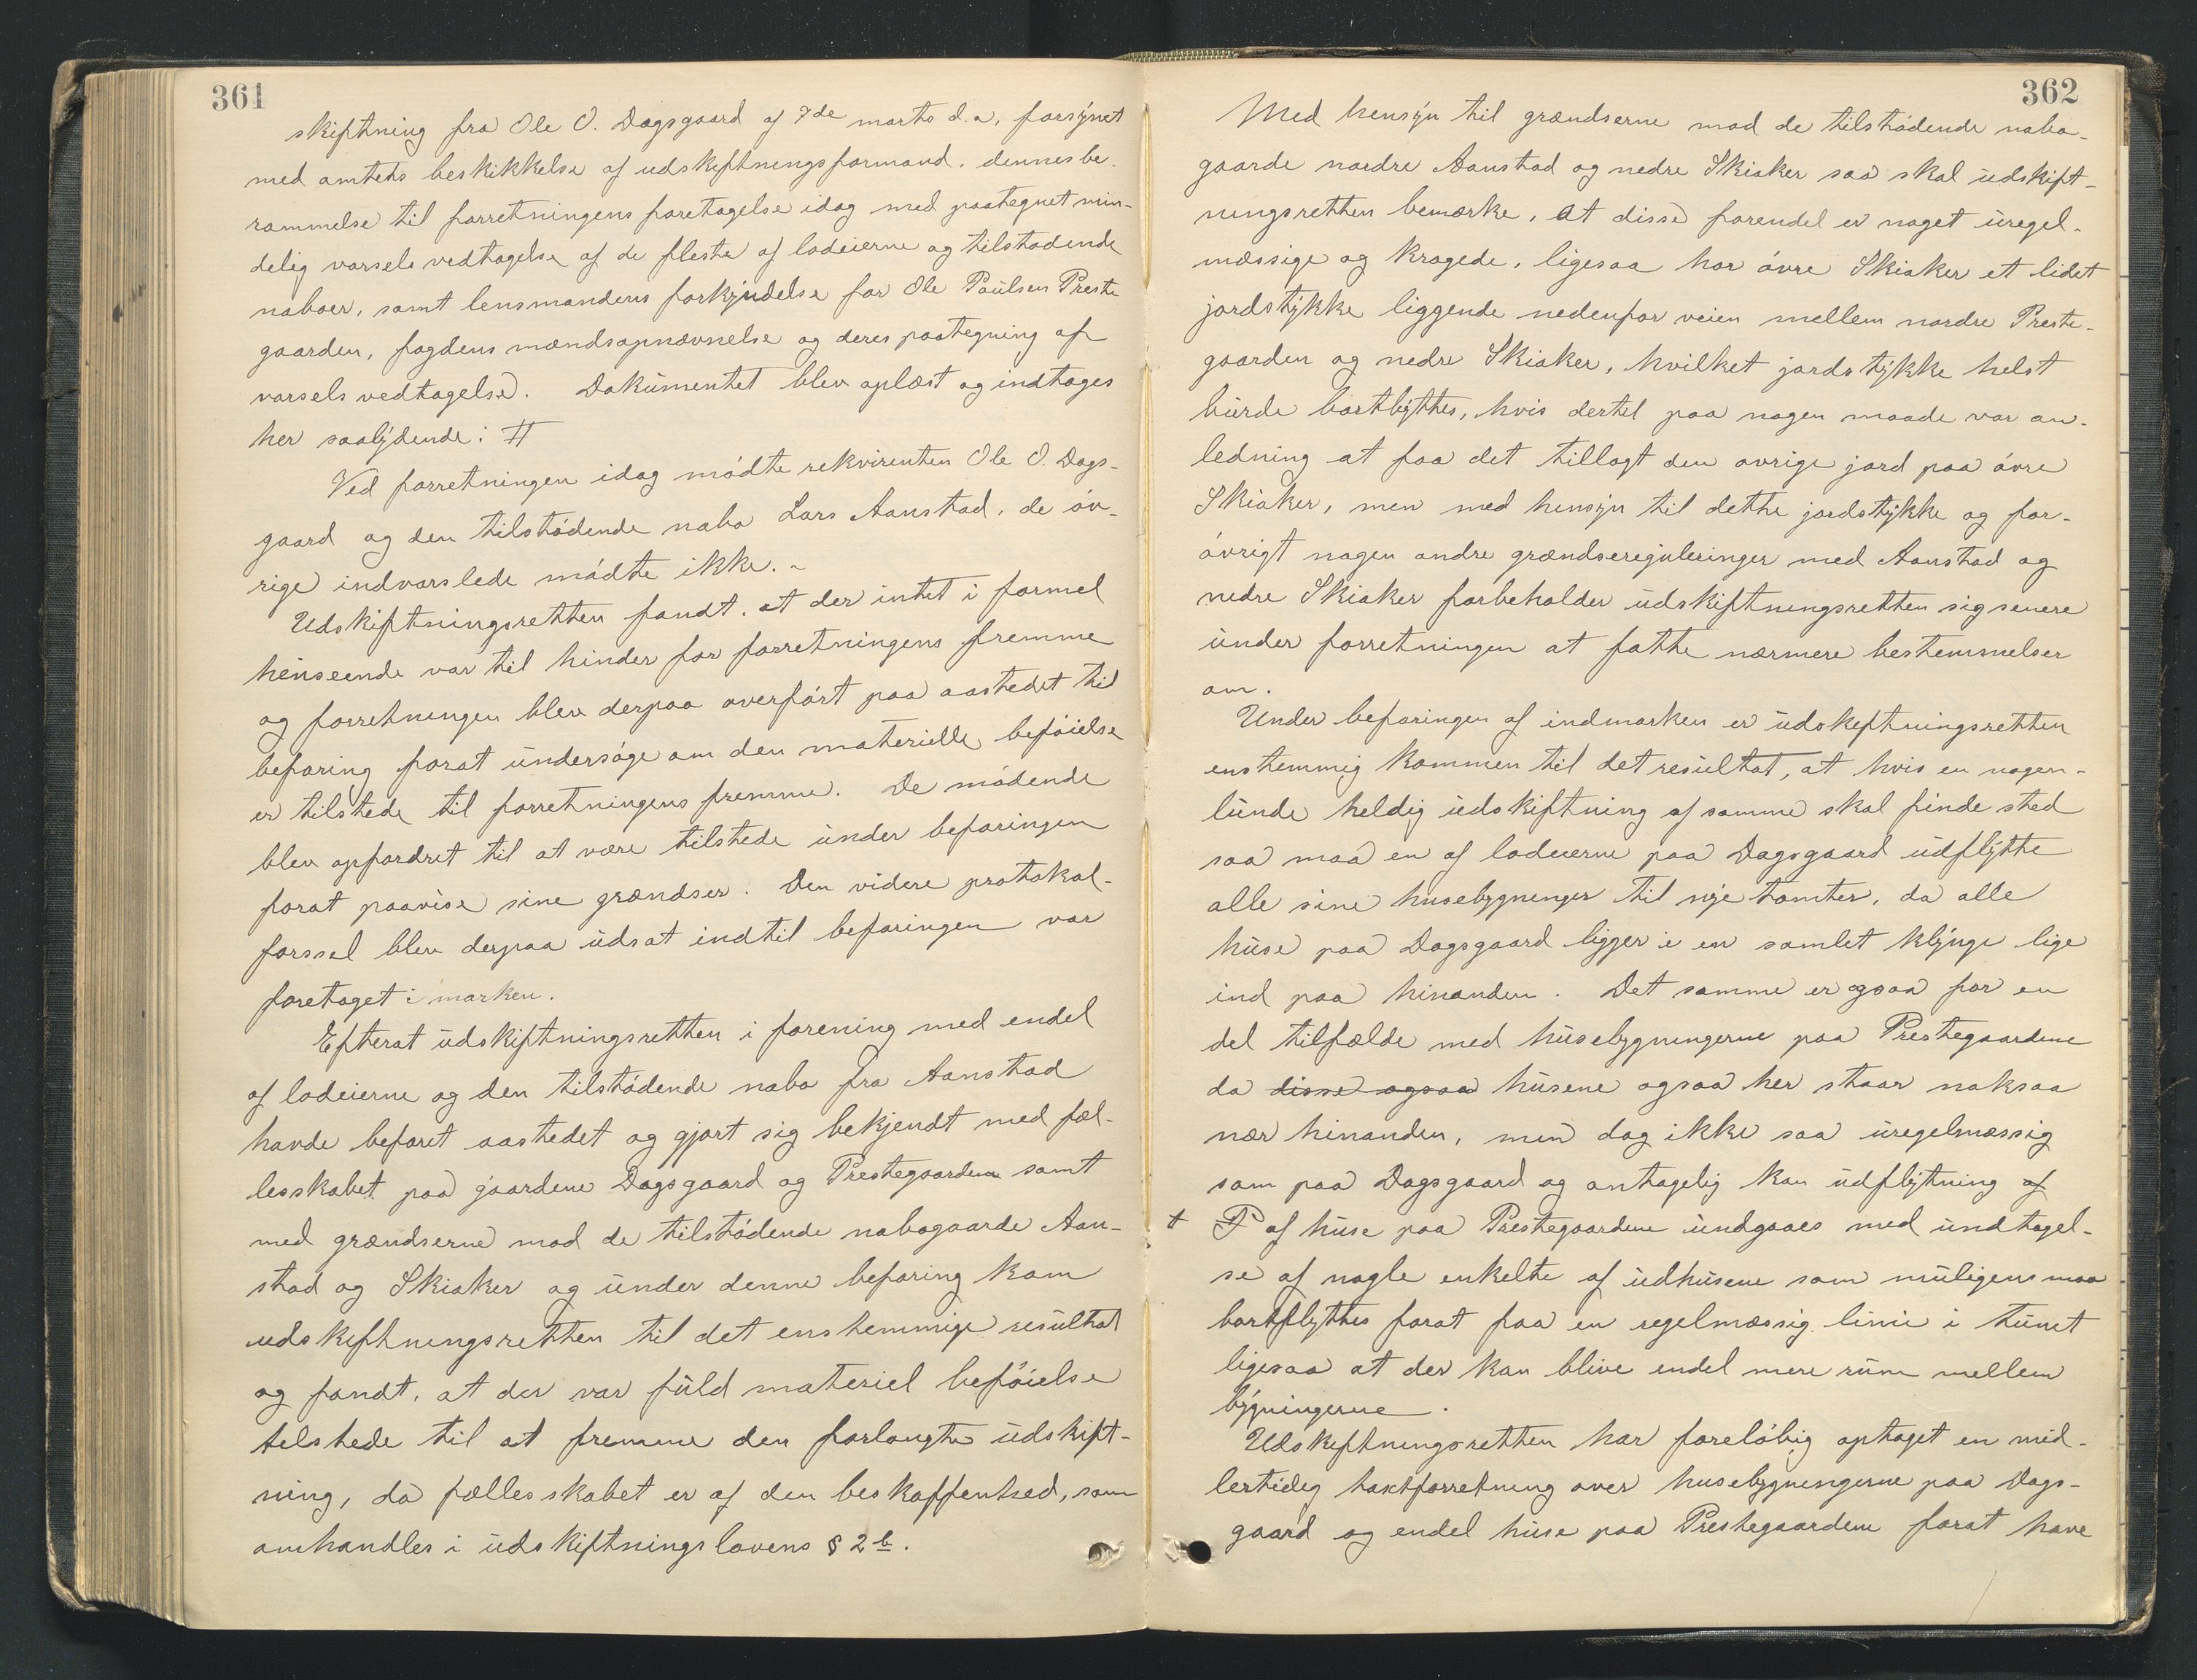 361
skiftning fra Ole O. Dagsgaard af 7de marts d.a, forsynet
med amtets beskikkelse af udskiftningsformand, dennes be-
rammelse til forretningens foretagelse idag med paategnet min-
delig varsels vedtagelse af de fleste af lodeierne og tilstødende
naboer, samt lensmandens forkyndelse for Ole Paulsen Preste
gaarden, fogdens mændsopnævnelse og deres paategning af
varsels vedtagelse. Dokumentet blev oplæst og indtages
her saalydende: #
Ved forretningen idag mødte rekvirenten Ole O. Dags-
gaard og den tilstødende nabo Lars Aanstad, de øv-
rige indvarslede mødte ikke. -
Udskiftningsretten fandt, at der intet i formel
henseende var til hinder for forretningens fremme
og forretningen blev derpaa overført paa aastedet til
befaring forat undersøge om den materielle beføielse
er tilstede til forretningens fremme. De mødende
blev opfordret til at være tilstede under befaringen
forat paavise sine grændser. Den videre protokol-
førsel blev derpaa udsat indtil befaringen var
foretaget i marken.
Efterat udskiftningsretten i forening med endel
af lodeierne og den tilstødende nabo fra Aanstad
havde befaret aastedet og gjort sig bekjendt med fæl-
lesskabet paa gaardene Dagsgaard og Prestegaarden samt
med grændserne mod de tilstødende nabogaarde Aan-
stad og Skiaker og under denne befaring kom
udskiftningsretten til det enstemmige resultat
og fandt, at der var fuld materiel beføielse
tilstede til at fremme den forlangte udskift-
ning, da fællesskabet er af den beskaffenhed, som
omhandles i udskiftningslovens § 2 b.
362
Med hensyn til grændserne mod de tilstødende nabo-
gaarde nordre Aanstad og nedre Skiaker saa skal udskift-
ningsretten bemærke, at disse forendel er noget uregel-
mæssige og kragede, ligesaa har øvre Skiaker et lidet
jordstykke liggende nedenfor veien mellem nordre Preste-
gaarden og nedre Skiaker, hvilket jordstykke helst
burde bortbyttes, hvis dertil paa nogen maade var an-
ledning at faa det tillagt den øvrige jord paa øvre
Skiaker, men med hensyn til dette jordstykke og for-
øvrigt nogen andre grændsereguleringer med Aanstad og
nedre Skiaker forbeholder udskiftningsretten sig senere
under forretningen at fatte nærmere bestemmelser
om.
Under befaringen af indmarken er udskiftningsretten
enstemmig kommen til det resultat, at hvis en nogen-
lunde heldig udskiftning af samme skal finde sted
saa maa en af lodeierne paa Dagsgaard udflytte
alle sine husebygninger til nye tomter, da alle
huse paa Dagsgaard ligger i en samlet klynge lige
ind paa hinanden. Det samme er ogsaa for en
del tilfælde med husebygningerne paa Prestegaardene
da disse ogsaa husene ogsaa her staar noksaa
nær hinanden, men dog ikke saa uregelmæssig
som paa Dagsgaard og antagelig kan udflytning af
+ P af huse paa Prestegaardene undgaaes med undtagel-
se af nogle enkelte af udhusene som muligens maa
bortflyttes forat faa en regelmæssig linie i tunet
ligesaa at der kan blive endel mere rum mellem
bygningerne.
Udskiftningsretten har foreløbig optaget en mid-
lertidig taxtforretning over husebygningerne paa Dags-
gaard og endel huse paa Prestegaardene forat have